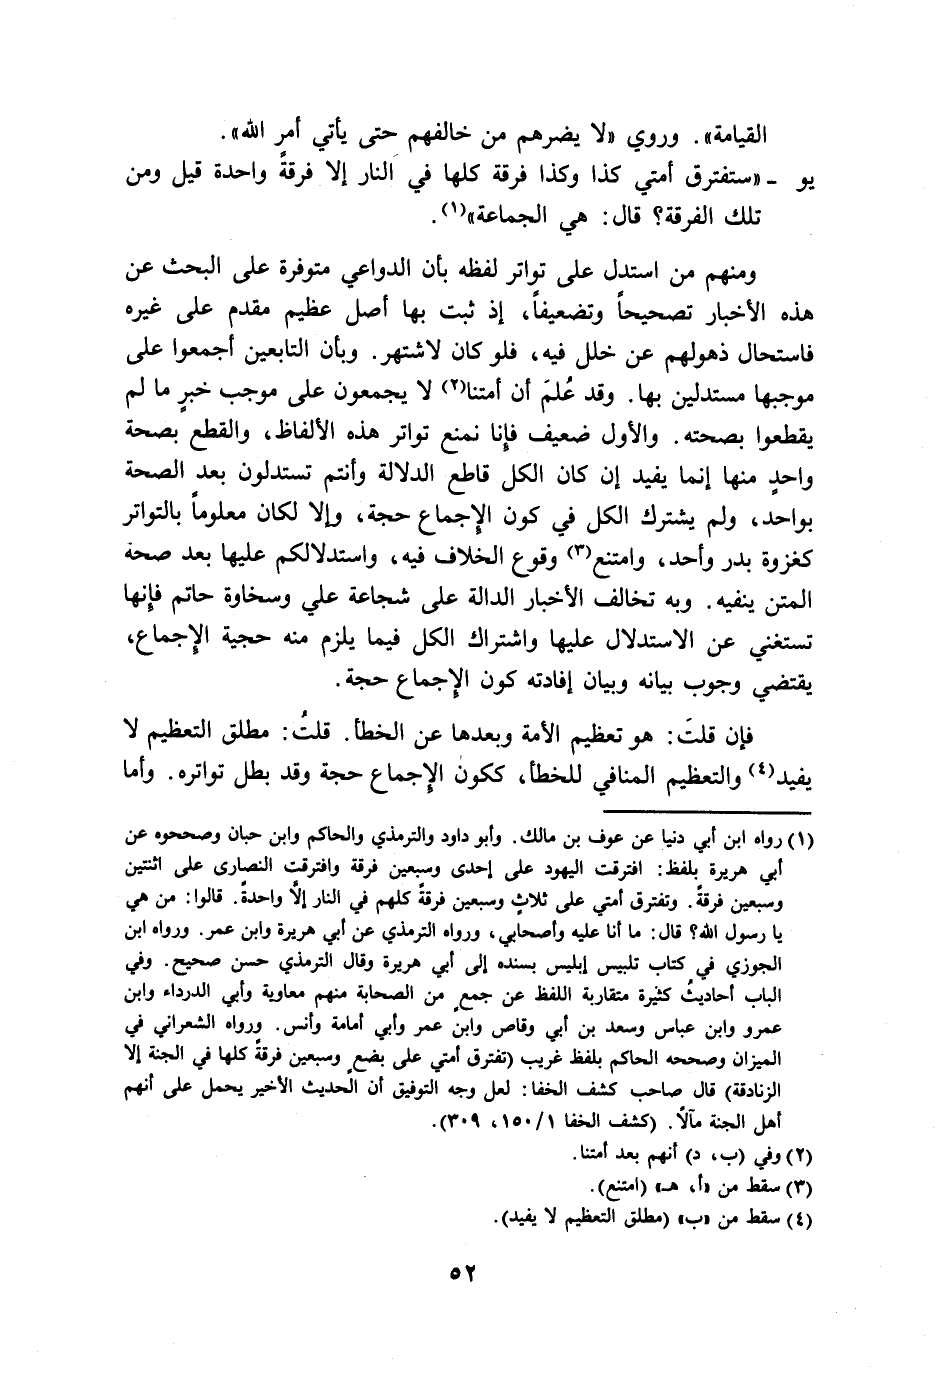 القيامة». وروي «لا يضرهم من خالفهم حتى يأتي أمر الله».
يو - «ستفترق أمتي كذا وكذا فرقة كلها في النار إلا فرقةً واحدة قيل ومن
تلك الفرقة؟ قال: هي الجماعة»(١).
ومنهم من استدل على تواتر لفظه بأن الدواعي متوفرة على البحث عن
هذه الأخبار تصحيحاً وتضعيفاً، إذ ثبت بها أصل عظيم مقدم على غيره
فاستحال ذهولهم عن خلل فيه، فلو كان لاشتهر. وبأن التابعين أجمعوا على
موجبها مستدلين بها. وقد عُلمَ أن أمتنا(٢) لا يجمعون على موجب خبرٍ ما لم
يقطعوا بصحته. والأول ضعيف فإنا نمنع تواتر هذه الألفاظ، والقطع بصحة
واحدٍ منها إنما يفيد إن كان الكل قاطع الدلالة وأنتم تستدلون بعد الصحة
بواحد، ولم يشترك الكل في كون الإجماع حجة، وإلا لكان معلوماً بالتواتر
كغزوة بدر وأحد، وامتنع(٣) وقوع الخلاف فيه، واستدلالكم عليها بعد صحة
المتن ينفيه. وبه تخالف الأخبار الدالة على شجاعة علي وسخاوة حاتم فإنها
تستغني عن الاستدلال عليها واشتراك الكل فيما يلزم منه حجية الإجماع،
يقتضي وجوب بيانه وبيان إفادته كون الإجماع حجة.
فإن قلتَ: هو تعظيم الأمة وبعدها عن الخطأ. قلتُ: مطلق التعظيم لا
يفيد(٤) والتعظيم المنافي للخطأ، ككون الإجماع حجة وقد بطل تواتره. وأما
(١) رواه ابن أبي دنيا عن عوف بن مالك. وأبو داود والترمذي والحاكم وابن حبان وصححوه عن
أبي هريرة بلفظ: افترقت اليهود على إحدى وسبعين فرقة وافترقت النصارى على اثنتين
وسبعين فرقةً. وتفترق أمتي على ثلاثٍ وسبعين فرقةً كلهم في النار إلاَّ واحدةً. قالوا: من هي
يا رسول الله؟ قال: ما أنا عليه وأصحابي، ورواه الترمذي عن أبي هريرة وابن عمر. ورواه ابن
الجوزي في كتاب تلبيس إبليس بسنده إلى أبي هريرة وقال الترمذي حسن صحيح. وفي
الباب أحاديثُ كثيرة متقاربة اللفظ عن جمعٍ من الصحابة منهم معاوية وأبي الدرداء وابن
عمرو وابن عباس وسعد بن أبي وقاص وابن عمر وأبي أمامة وأنس. ورواه الشعراني في
الميزان وصححه الحاكم بلفظ غريب (تفترق أمتي على بضعٍ وسبعين فرقةً كلها في الجنة إلا
الزنادقة) قال صاحب كشف الخفا: لعل وجه التوفيق أن الحديث الأخير يحمل على أنهم
أهل الجنة مآلاً. (كشف الخفا ١/١٥٠، ٣٠٩).
(٢) وفي (ب، د) أنهم بعد أمتنا.
(٣) سقط من «أ، هـ» (امتنع).
(٤) سقط من «ب» (مطلق التعظيم لا يفيد).
٥٢